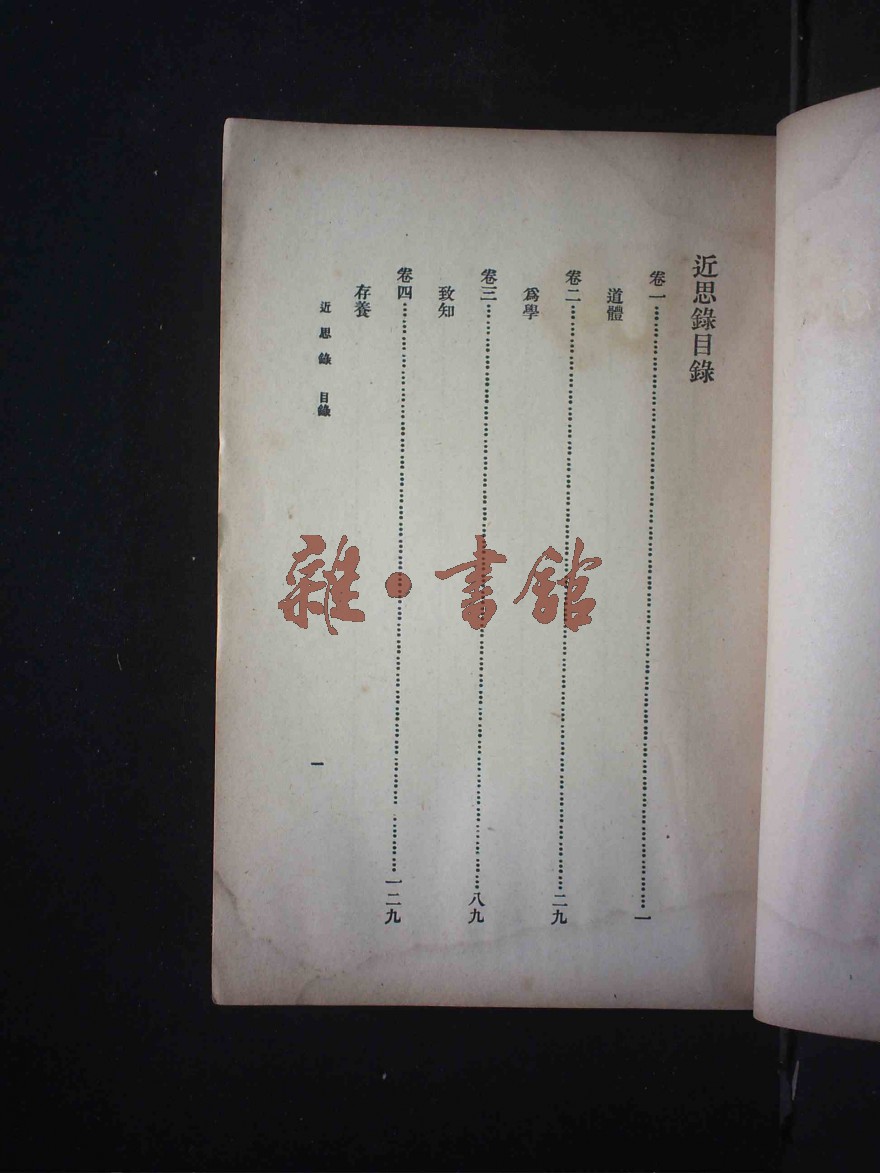 近思錄目錄
卷一……………………一
道體
卷二……………………二九
爲學
卷三……………………八九
致知
卷四……………………一二九
存養
近思錄 目錄 一
雜·書館